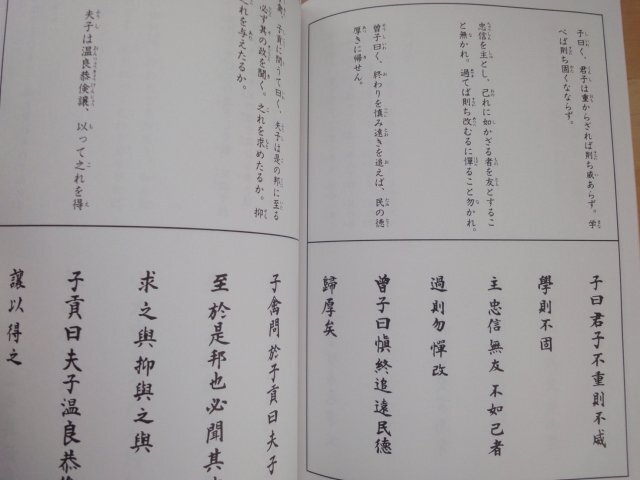 子曰く、君子は重からざれば則ち威あらず。学
べば則ち固くなならず。
忠信を主とし、己れに如かざる者を友とするこ
と無かれ。過てば則ち改むるに憚ること勿かれ。
曽子曰く、終わりを慎み遠きを追えば、民の徳
厚きに帰せん。
子曰君子不重則不威
學則不固
主忠信無友不如己者
過則勿憚改
曽子曰愼終追遠民徳
歸厚矣
子貢に問うて曰く、夫子は是の邦に至る
必ず其の政を聞く。之れを求めたるか。抑
之れを与えたるか。
夫子は温良恭倹譲、以って之れを得
子禽問於子貢曰夫子
至於是邦也必聞其
求之與抑與之與
子貢曰夫子温良恭
讓以得之